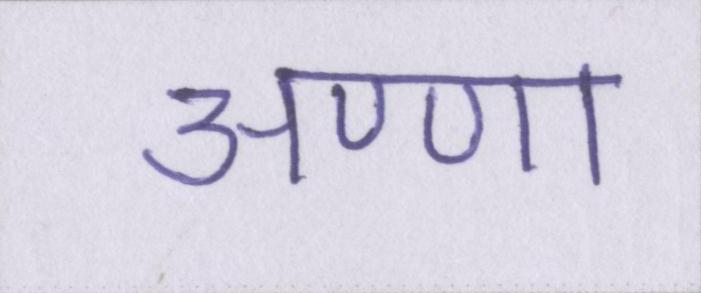 अण्णा